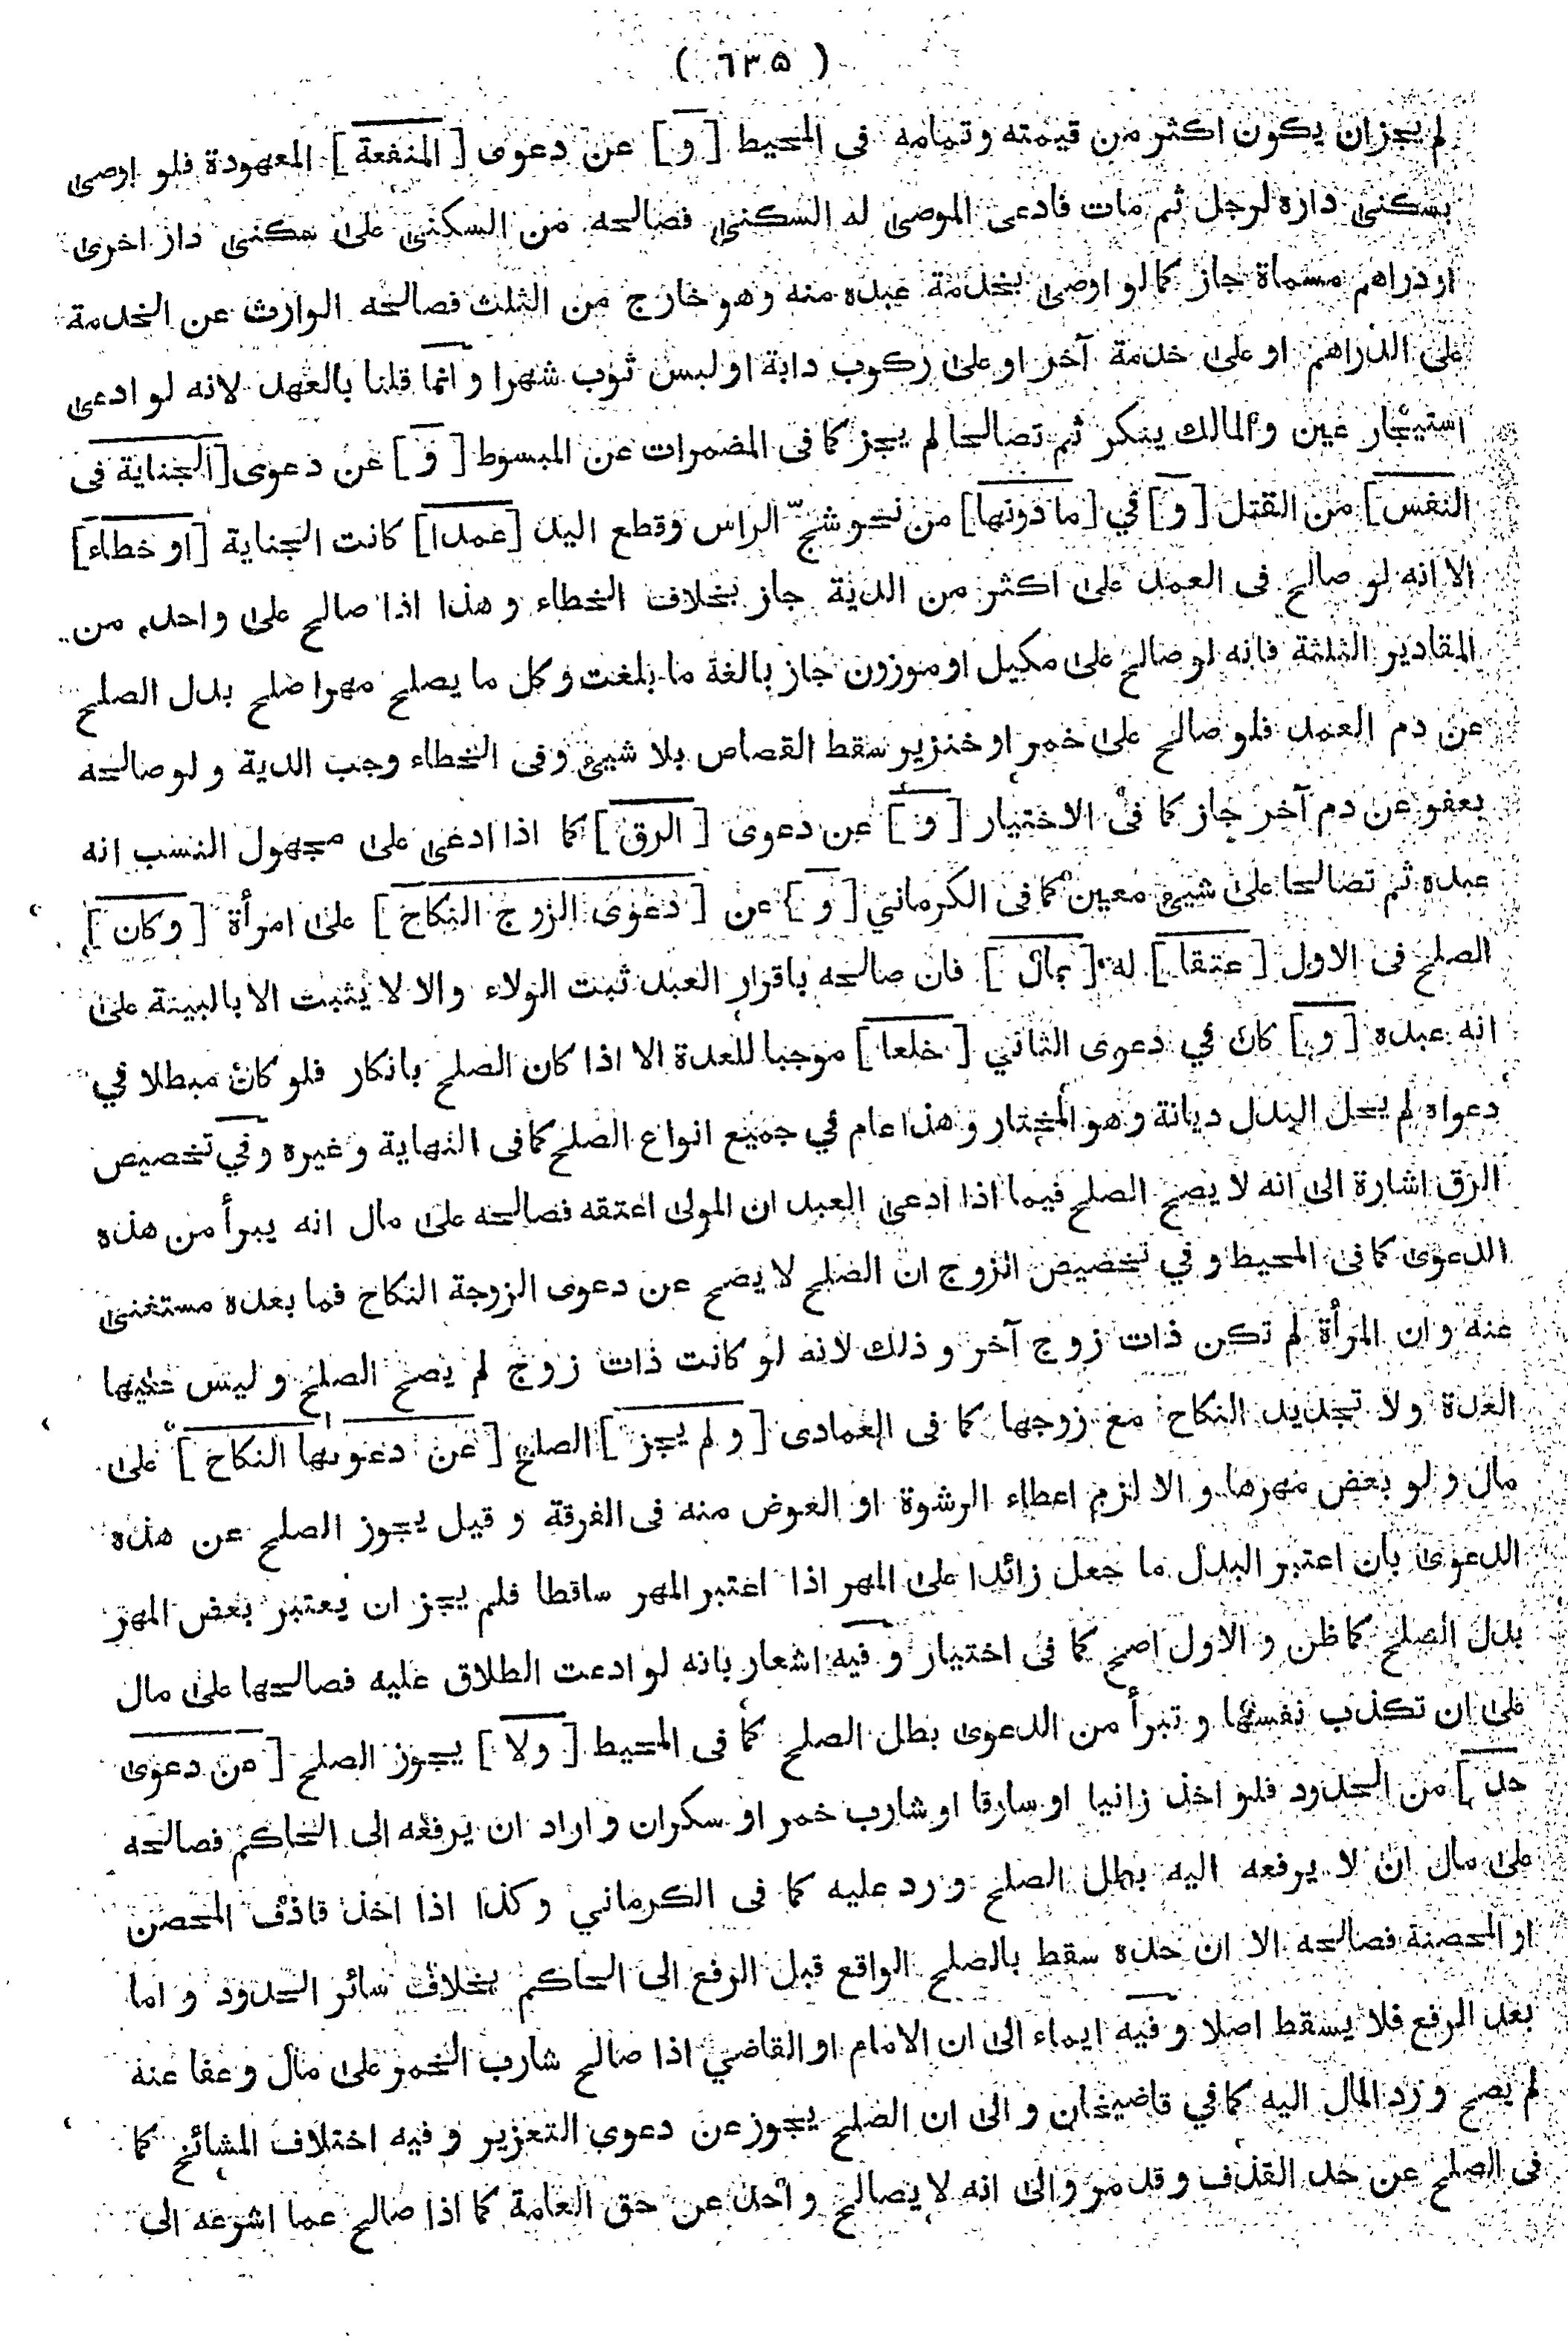 ( ٦٣٥ )
لم يجزان يكون اكثر من قيمته وتمامه فى المحيط [ و ] عن دعوى [ المنفعة ] المعهودة فلو اوصى
بسكنى داره لرجل ثم مات فادعى الموصى له السكنى فصالحه من السكنى على سكنى دار اخرى
او دراهم مسماة جاز كما لو اوصى بخدمة عبده منه وهو خارج من الثلث فصالحه الوارث عن الخدمة
على الدراهم او على خدمة آخر او على ركوب دابة او لبس ثوب شهرا و انما قلنا بالعهد لانه لو ادعى
استيجار عين والمالك ينكر ثم تصالحا لم يجز كما فى المضمرات عن المبسوط [ و ] عن دعوى [ الجناية فى
النفس ] من القتل [ و ] في [ ما دونها ] من نحو شجّ الراس وقطع اليد [ عمدا ] كانت الجناية [ او خطاء ]
الا انه لو صالح فى العمد على اكثر من الدية جاز بخلاف الخطاء و هذا اذا صالح على واحد من
المقادير الثلثة فانه لو صالح على مكيل او موزون جاز بالغة ما بلغت وكل ما يصلح مهرا صلح بدل الصلح
عن دم العمد فلو صالح على خمر او خنزير سقط القصاص بلا شيئ وفى الخطاء وجب الدية و لو صالحه
بعفو عن دم آخر جاز كما فى الاختيار [ و ] عن دعوى [ الرق ] كما اذا ادعى على مجهول النسب انه
عبده ثم تصالحا على شيئ معين كما فى الكرماني [ و ] عن [ دعوى الزوج النكاح ] على امرأة [ وكان ]
الصلح فى الاول [ عتقا ] له [ بمال ] فان صالحه باقرار العبد ثبت الولاء والا لا يثبت الا بالبينة على
انه عبده [ و ] كان في دعوى الثاني [ خلعا ] موجبا للعدة الا اذا كان الصلح بانكار فلو كان مبطلا في
دعواه لم يحل البدل ديانة و هو المختار وهذا عام في جميع انواع الصلح كما فى النهاية وغيره وفي تخصيص
الرق اشارة الى انه لا يصح الصلح فيما اذا ادعى العبد ان المولى اعتقه فصالحه على مال انه يبرأ من هذه
الدعوى كما فى المحيط و في تخصيص الزوج ان الصلح لا يصح عن دعوى الزوجة النكاح فما بعده مستغنى
عنه و ان المرأة لم تكن ذات زوج آخر و ذلك لانه لو كانت ذات زوج لم يصح الصلح و ليس عليها
العدة ولا تجديد النكاح مع زوجها كما فى العمادى [ و لم يجز ] الصلح [ عن دعوىها النكاح ] على
مال و لو بعض مهرها و الا لزم اعطاء الرشوة او العوض منه فى الفرقة و قيل يجوز الصلح عن هذه
الدعوى بان اعتبر البدل ما جعل زائدا على المهر اذا اعتبر المهر ساقطا فلم يجز ان يعتبر بعض المهر
بدل الصلح كما ظن و الاول اصح كما فى اختيار و فيه اشعار بانه لو ادعت الطلاق عليه فصالحها على مال
على ان تكذب نفسها و تبرأ من الدعوى بطل الصلح كما فى المحيط [ ولا ] يجوز الصلح [ عن دعوى
حد ] من الحدود فلو اخذ زانيا او سارقا او شارب خمر او سكران و اراد ان يرفعه الى الحاكم فصالحه
على مال ان لا يرفعه اليه بطل الصلح و رد عليه كما فى الكرماني و كذا اذا اخذ قاذف المحصن
او المحصنة فصالحه الا ان حده سقط بالصلح الواقع قبل الرفع الى الحاكم بخلاف سائر الحدود و اما
بعد الرفع فلا يسقط اصلا و فيه ايماء الى ان الامام او القاضي اذا صالح شارب الخمر على مال و عفا عنه
لم يصح و رد المال اليه كما في قاضيخان و الى ان الصلح يجوز عن دعوى التعزير و فيه اختلاف المشائخ كما
فى الصلح عن حد القذف و قد مر والى انه لا يصالح واحد عن حق العامة كما اذا صالح عما اشرعه الى